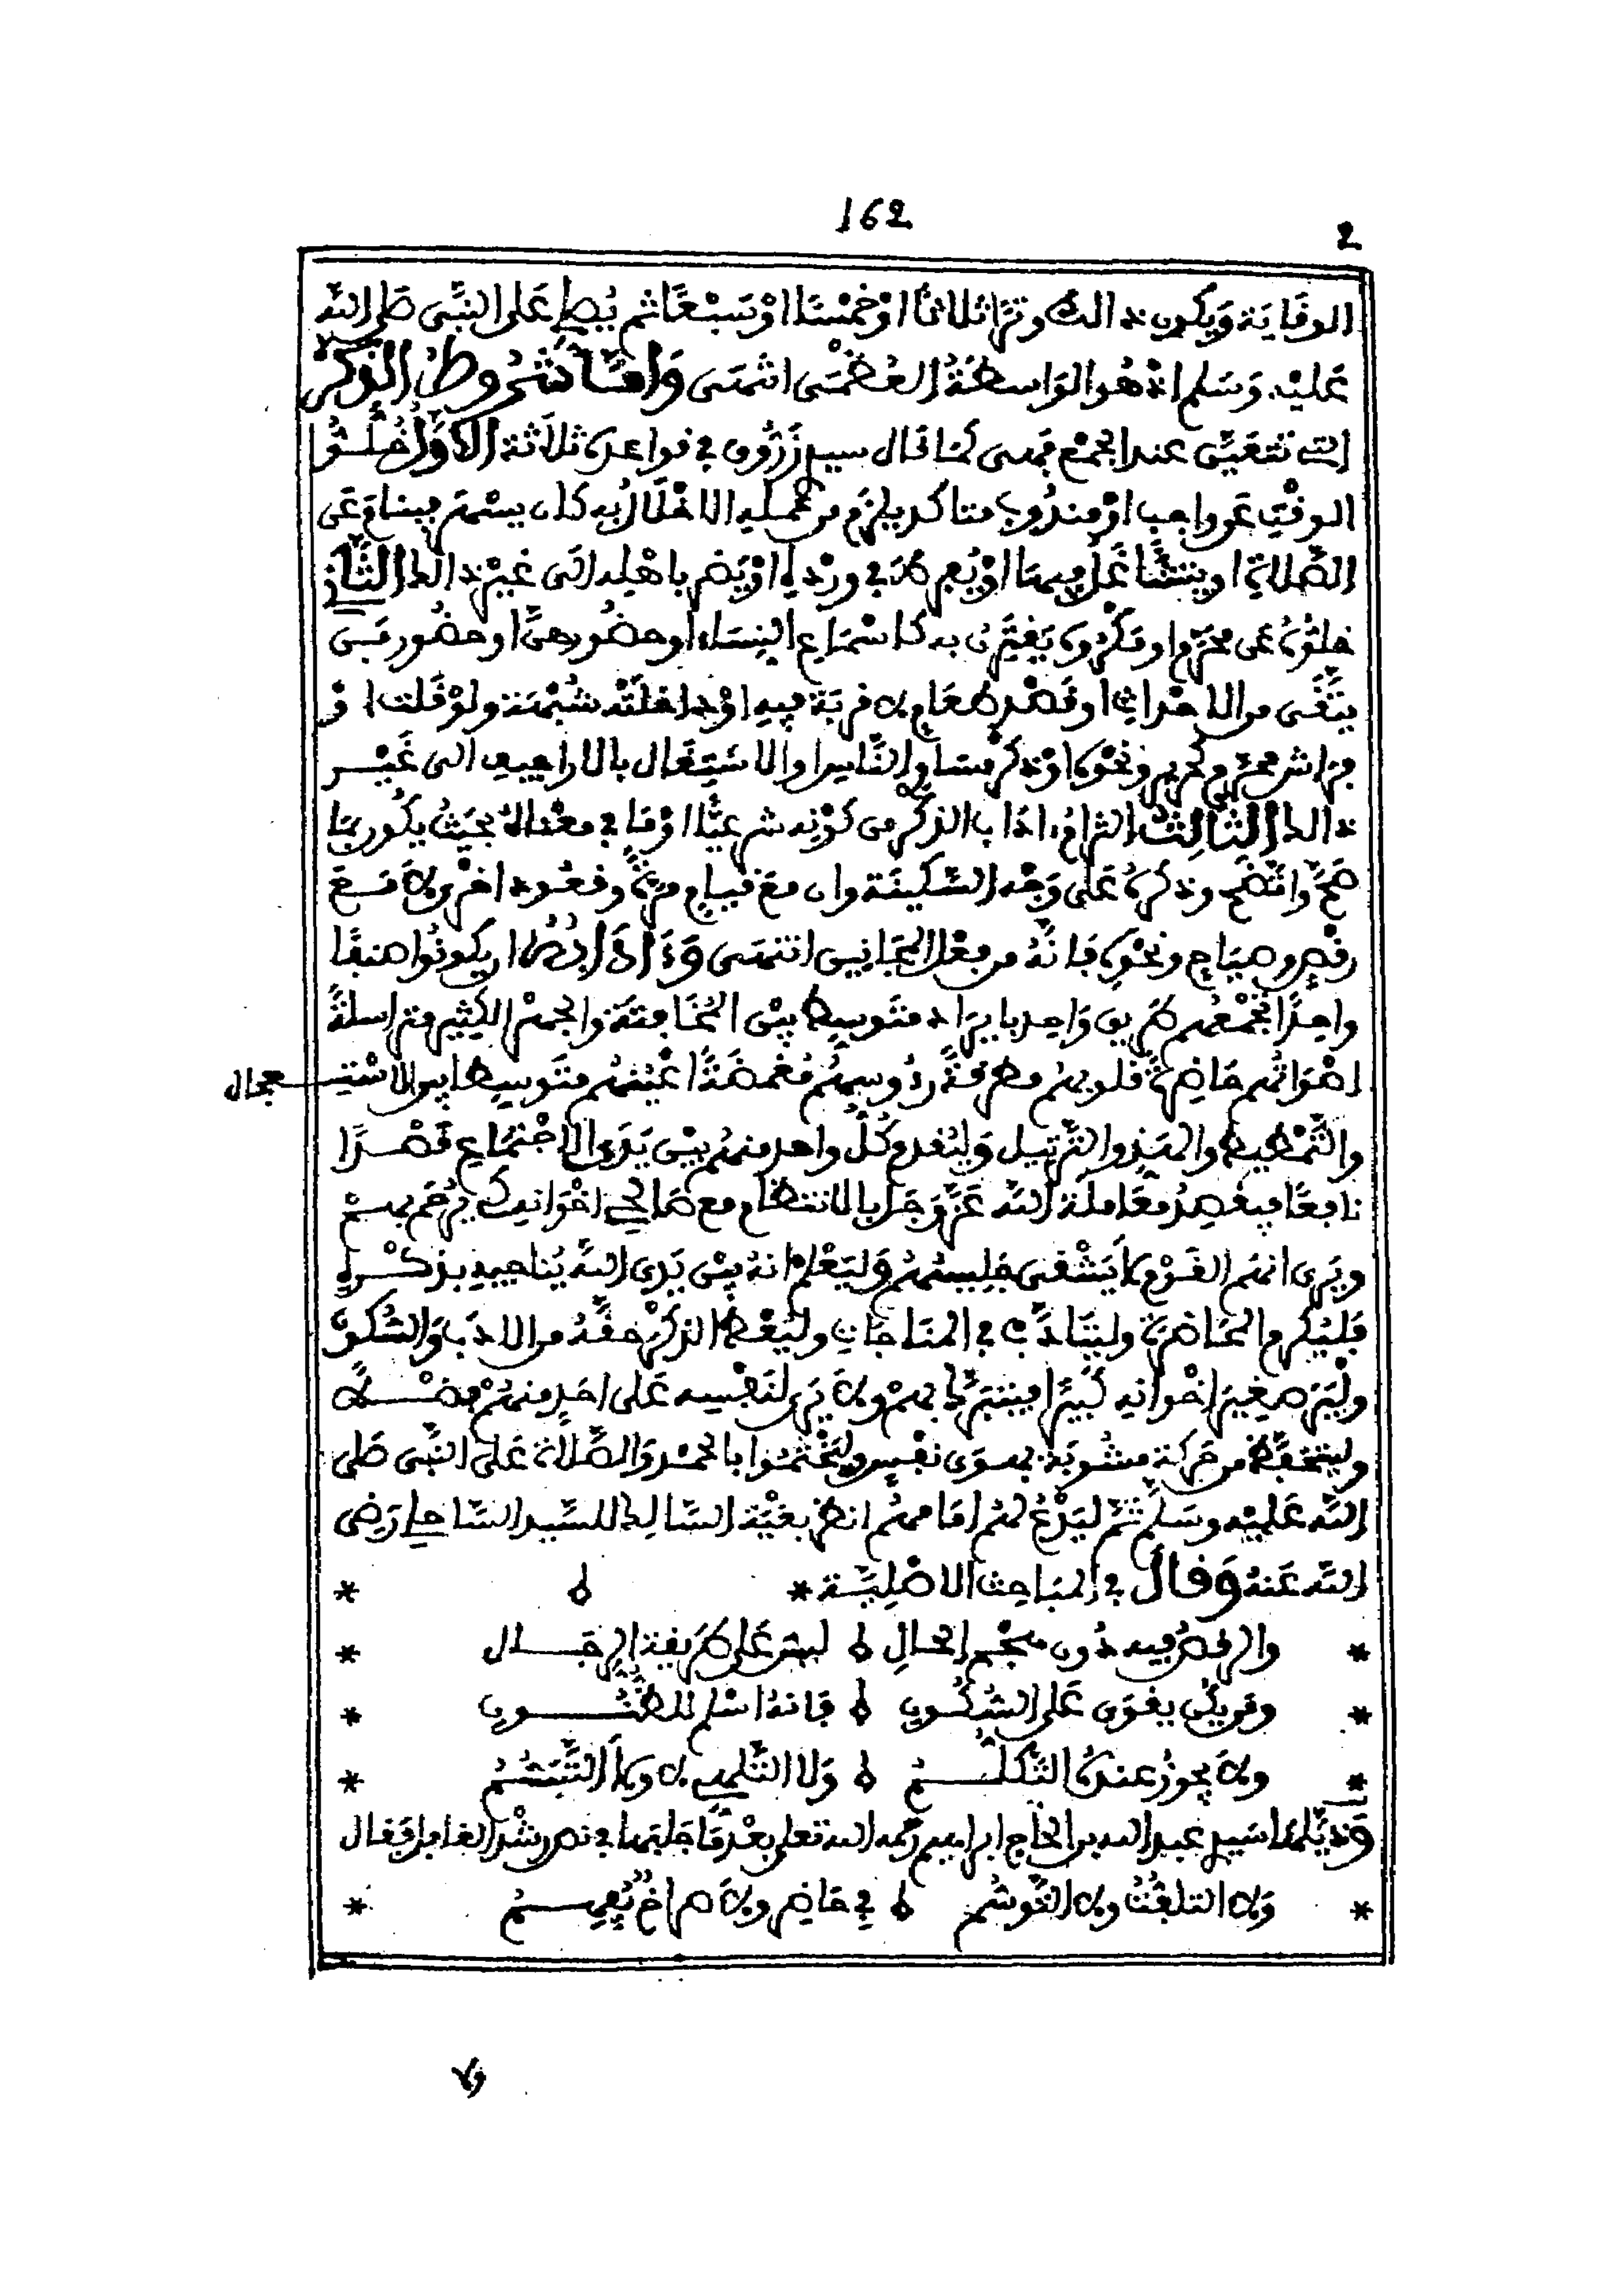 162
2
الوقاية ويكون ذالك وترا ثلاثا او خمسا او سبعا ثم يصلي على النبي صلى الله
عليه وسلم اذ هو الواسطة العظمى انتهى وأما شروط الذكر
التي تتعين عند الجمع فهي كما قال سيد زروق في قواعده ثلاثة الاول خلو
الوقت عن واجب او مندوب متاكد يلزم من عمله الاخلال به كان يسهر فينام عن
الصلاة او يتشاغل فيها او يفرط في ورده او يضر باهله الى غير ذالك الثاني
خلوه عن محرم او مكره يقترن به كاسماع النساء او حضورهن او حضور من
يتقى من الاحداث او قصد طعام لا قربة فيه او داخلته شبهة ولو قلت او
فراش محرم كحرير ونحوه او ذكر مساوي الناس او الاشتغال بالاراجيف الى غير
ذالك الثالث التزام اداب الذكر من كونه شرعيا او ما في معناه بحيث يكون بما
صح واتضح وذكره على وجه السكينة وان مع قيام مرة وقعود اخرى لا مع
رقص وصياح ونحوه فانه من فعل المجانين انتهى وءادابه ان يكونوا صفا
واحدا تجمعهم طريق واحد بايراد متوسط بين المخافتة والجهر الكثير متراسلة
اصواتهم حاضرة قلوبهم مطرقة رءوسهم مغمضة اعينهم متوسطا بين الاستعجال
والتمطيط والمد والترتيل وليقدم كل واحد منهم بين يدي الاجتماع قصدا
نافعا فيقصد معاملة الله عز وجل بالانتظام مع صالحي اخوانه كي يرحم بهم
ويرى انهم القوم لا يشقى جليسهم وليعلم انه بين يدي الله يناجيه بذكره
فليكرم المحاضرة وليتادب في المناجات وليعط الذكر حقه من الادب والسكون
ولير صغير اخوانه كبيرا فيتبرك بهم ولا يرى لنفسه على احد منهم فضلا
وليتحفظ من حركة مشوبة بهوى نفس وليختموا بالحمد والصلاة على النبي صلى
الله عليه وسلم ثم ليدع لهم امامهم انظر بغية السالك للسيد الساحلي رضي
الله عنه وقال في المباحث الاصلية *
* والرقص فيه دون هجم الحال ليس على طريقة الرجال *
* وقد يكن يقوى على السكون فانه اسلم للظنون *
* ولا يجوز عنده التكلم ولا التلهي لا ولا التبسم *
وذيلها سيد عبد الله بن الحاج ابراهيم رحمه الله تعلى بعد ما جلبها في نصر شد الغافل فقال
* ولا التلفت ولا التوشم في حاضر ولا صراخ يفهم *
ولا